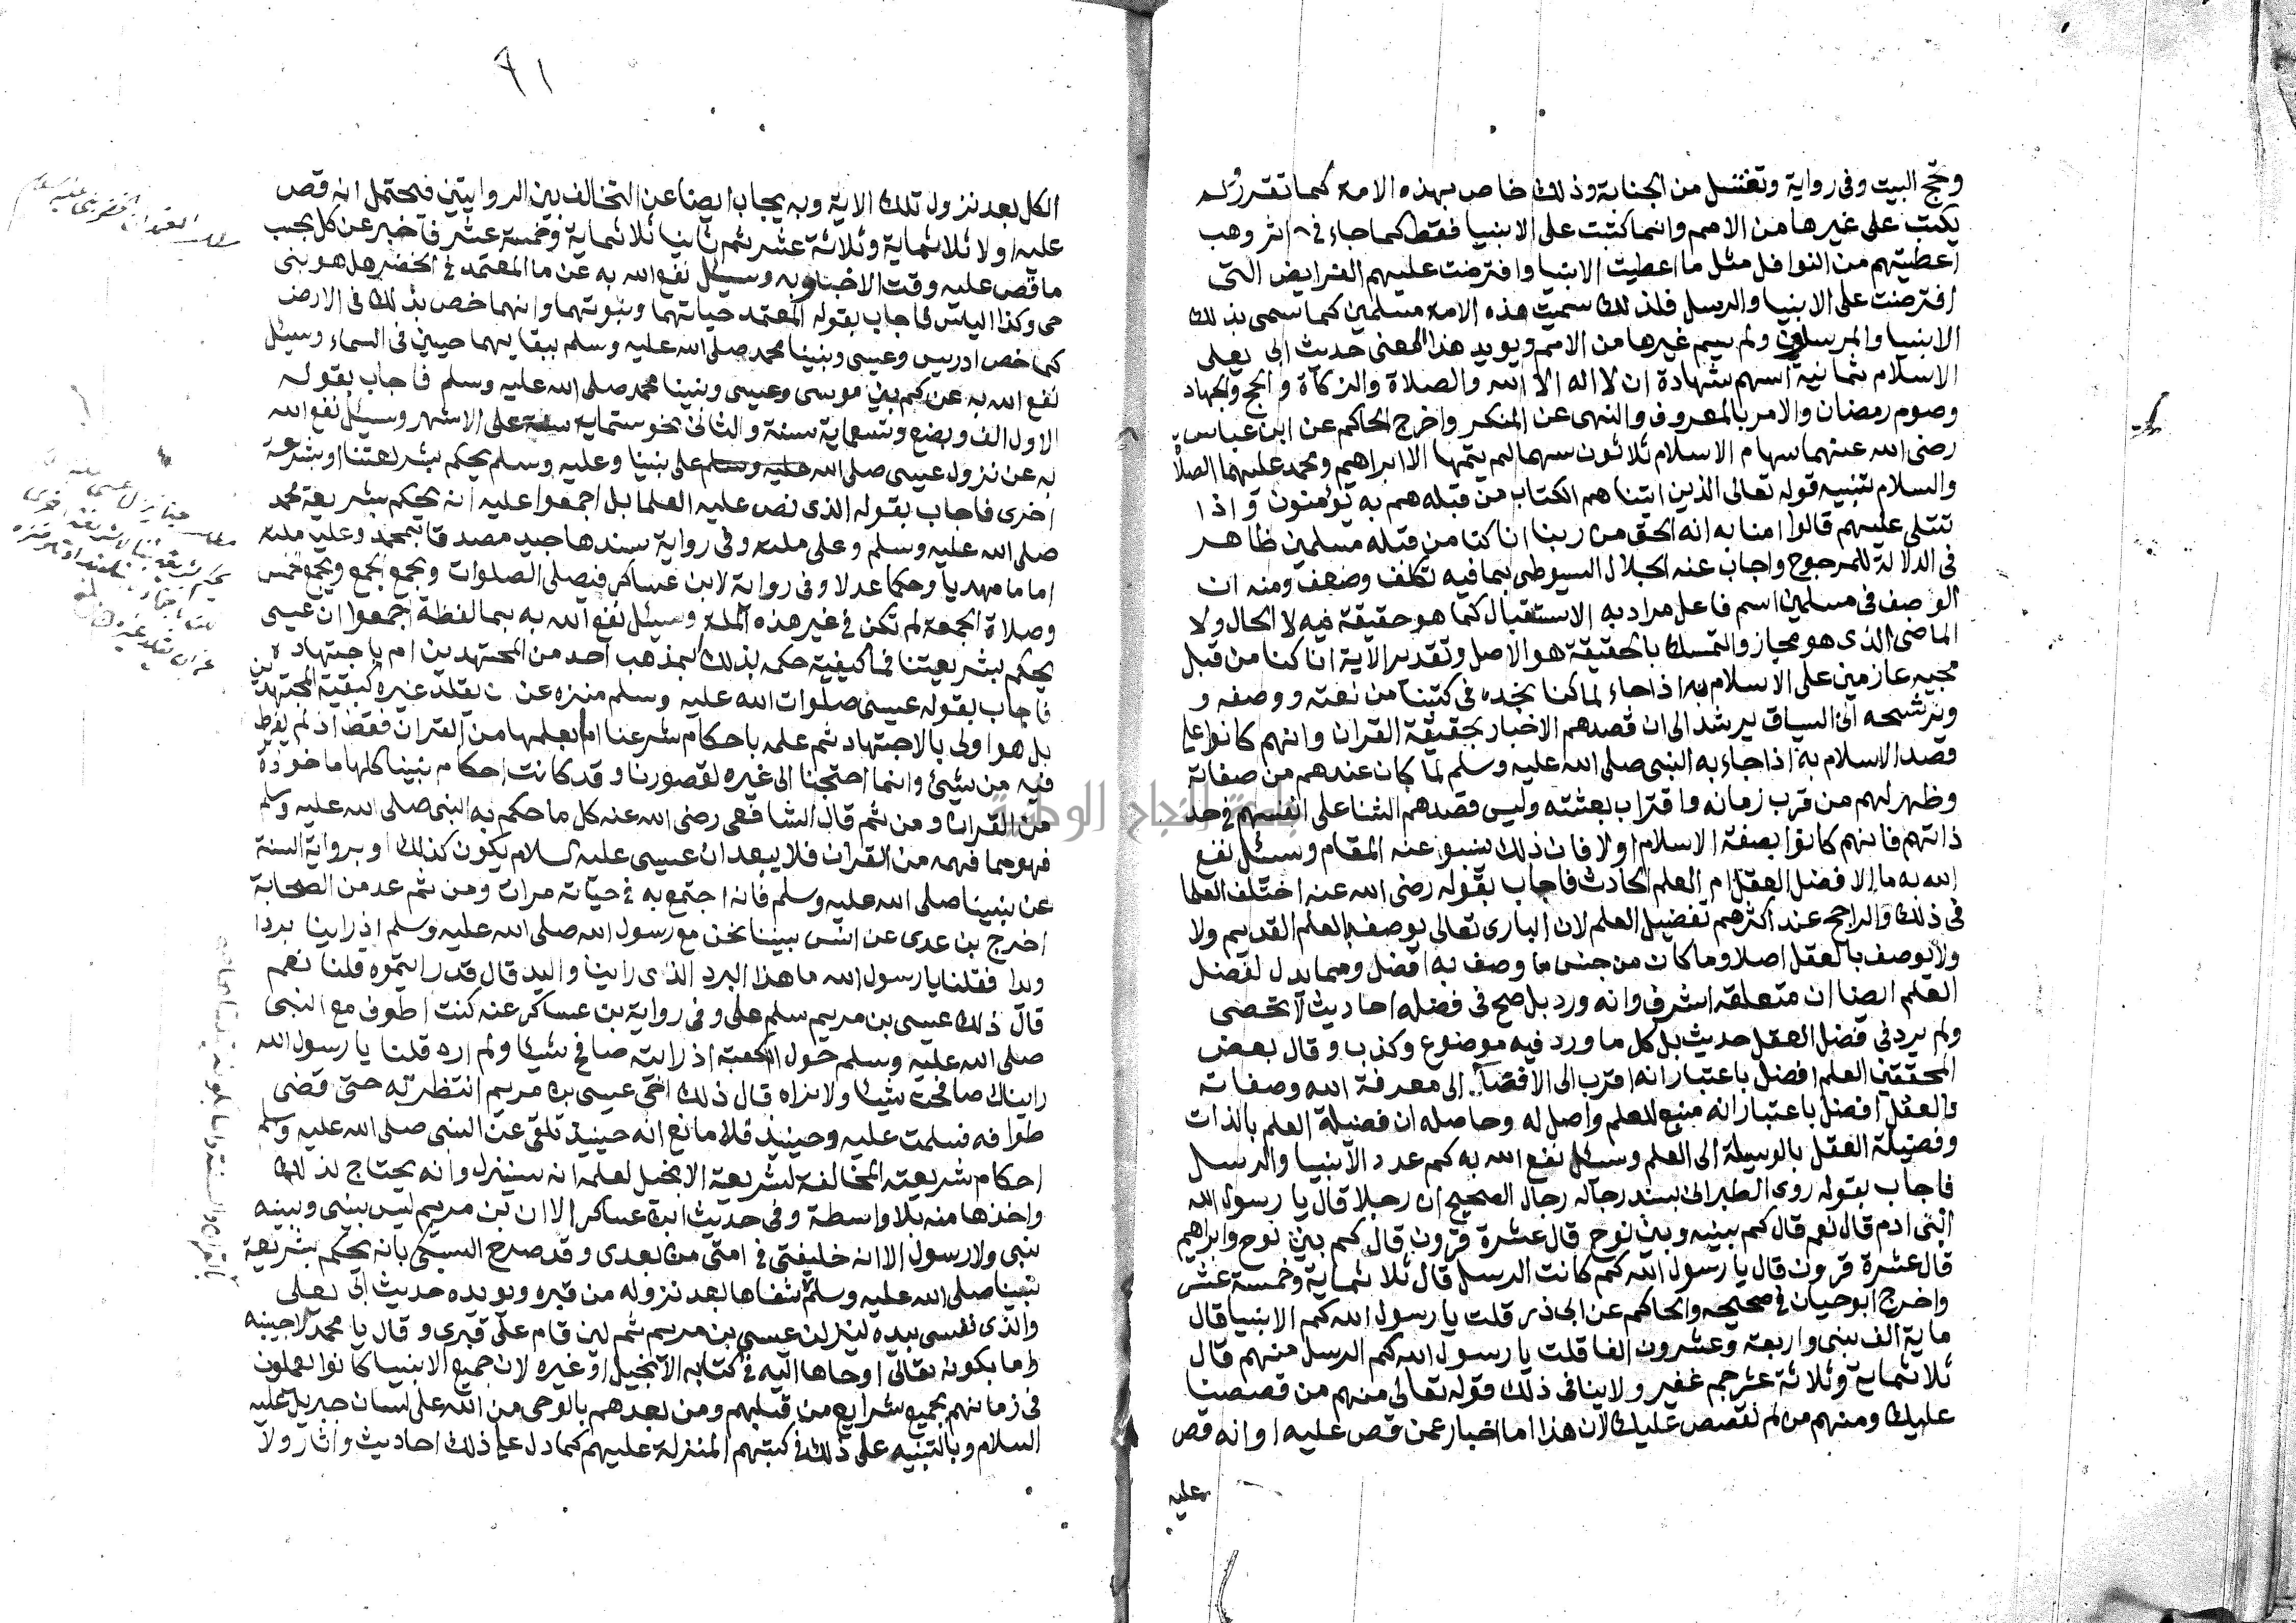 وتحج البيت وفى رواية وتغتسل من الجنابة وذلك خاص بهذه الامه كما تقرر ولم
يكتب على غيرها من الامم وانما كتبت على الانبيا فقط كما جاء فى اثر وهب
اعطيتهم من النوافل مثل ما اعطيت الانبيا وافترضت عليهم الفرايض التى
افترضت على الانبيا والرسل فلذلك سميت هذه الامه مسلمين كما سمى بذلك
الانبيا والمرسلون ولم يسم غيرها من الامم ويويد هذا المعنى حديث ابى يعلى
الاسلام ثمانية اسهم شهادة ان لا اله الا الله والصلاة والزكاة والحج والجهاد
وصوم رمضان والامر بالمعروف والنهى عن المنكر واخرج الحاكم عن ابن عباس
رضى الله عنهما سهام الاسلام ثلاثون سهما لم يتمها الا ابراهيم ومحمد عليهما الصلاة
والسلام تنبيه قوله تعالى الذين اتيناهم الكتاب من قبله هم به يؤمنون واذا
تتلى عليهم قالوا امنا به انه الحق من ربنا انا كنا من قبله مسلمين ظاهر
فى الدلالة للمرجوح واجاب عنه الجلال السيوطى بما فيه تكلف وضعف ومنه ان
الوصف فى مسلمين اسم فاعل مراد به الاستقبال كما هو حقيقة فيه لا الحال ولا
الماضى الذى هو مجاز والتمسك بالحقيقة هو الاصل وتقدير الاية انا كنا من قبل
مجيه عازمين على الاسلام به اذا جاء لما كنا نجده فى كتبنا من نعته ووصفه و
ويرشحه ان السياق يرشد الى ان قصدهم الاخبار بحقيقة القران وانهم كانوا على
قصد الاسلام به اذا جاء به النبى صلى الله عليه وسلم لما كان عندهم من صفاته
وظهر لهم من قرب زمانه واقتراب بعثته وليس قصدهم الثنا على انفسهم فى حد
ذاتهم فانهم كانوا بصفة الاسلام اولا فان ذلك ينبو عنه المقام وسئل نفع
الله به ما الافضل العقل ام العلم الحادث فاجاب بقوله رضى الله عنه اختلف العلما
فى ذلك والراجح عند اكثرهم تفضيل العلم لان البارى تعالى يوصف بالعلم القديم ولا
ولا يوصف بالعقل اصلا وما كان من جنس ما وصف به افضل ومما يدل لفضل
العلم ايضا ان متعلقه اشرف وانه ورد بل صح فى فضله احاديث لا تحصى
ولم يرد فى فضل العقل حديث بل كل ما ورد فيه موضوع وكذب وقال بعض
المحققين العلم افضل باعتبار انه اقرب الى الافضا الى معرفة الله وصفاته
والعقل افضل باعتبار انه منبع للعلم واصل له وحاصله ان فضيلة العلم بالذات
وفضيلة العقل بالوسيلة الى العلم وسئل نفع الله به كم عدد الانبيا والرسل
فاجاب بقوله روى الطبرانى بسند رجاله رجال الصحيح ان رجلا قال يا رسول الله
انبى ادم قال نعم قال كم بينه وبين نوح قال عشرة قرون قال كم بين نوح وابراهيم
قال عشرة قرون قال يا رسول الله كم كانت الرسل قال ثلاثماية وخمسة عشر
واخرج ابوحيان فى صحيحه والحاكم عن ابى ذر قلت يا رسول الله كم الانبيا قال
ماية الف نبى واربعة وعشرون الفا قلت يا رسول الله كم الرسل منهم قال
ثلاثماية وثلاثة عشر جم غفير ولا ينافى ذلك قوله تعالى منهم من قصصنا
عليك ومنهم من لم نقصص عليك لان هذا اما اخبار عمن قص عليه او انه قص
عليه
٩١
الكل بعد نزول تلك الاية وبه يجاب ايضا عن التخالف بين الروايتين فيحتمل انه قص
عليه اولا ثلاثماية وثلاثة عشر ثم ثانيا ثلاثماية وخمسة عشر فاخبر عن كل بحسب
ما قص عليه وقت الاخبار به وسئل نفع الله به عن ما المعتمد فى الخضر هل هو نبى
حى وكذا الياس فاجاب بقوله المعتمد حياتهما ونبوتهما وانهما خص بذلك فى الارض
كما خص ادريس وعيسى ونبينا محمد صلى الله عليه وسلم ببقايهما حيين فى السماء وسيل
نفع الله به عن كم بين موسى وعيسى ونبينا محمد صلى الله عليه وسلم فاجاب بقوله
الاول الف وبضع وتسعماية سنة والثانى نحو ستماية سنة على الاشهر وسيل نفع الله
به عن نزول عيسى صلى الله عليه وسلم على نبينا وعليه وسلم يحكم بشرعتنا او بشرعة
اخرى فاجاب بقوله الذى نص عليه العلما بل اجمعوا عليه انه يحكم بشريعة محمد
صلى الله عليه وسلم وعلى ملته وفى رواية سندها جيد مصدقا بمحمد وعلى ملته
اماما مهديا وحكما عدلا وفى رواية لابن عساكر فيصلى الصلوات ويجمع الجمع ويجمع خمس
وصلاة الجمعة لم تكن فى غير هذه الملة وسئل نفع الله به بما لفظه اجمعوا ان عيسى
يحكم بشريعتنا فما كيفية حكمه بذلك بمذهب احد من المجتهدين ام باجتهاده
فاجاب بقوله عيسى صلوات الله عليه وسلم منزه عن ان يقلد غيره كبقية المجتهدين
بل هو اولى بالاجتهاد ثم علمه باحكام شرعنا اما بعلمها من القران فقط اذ لم يفرط
فيه من شيئ وانما احتجنا الى غيره لقصورنا وقد كانت احكام نبينا كلها ماخوذة
من القران ومن ثم قال الشافعى رضى الله عنه كل ما حكم به النبى صلى الله عليه وسلم
فهو مما فهمه من القران فلا يبعد ان عيسى عليه السلام يكون كذلك او برواية السنة
عن نبينا صلى الله عليه وسلم فانه اجتمع به فى حياته مرات ومن ثم عد من الصحابة
اخرج بن عدى عن انس بينا نحن مع رسول الله صلى الله عليه وسلم اذ راينا بردا
ويدا فقلنا يا رسول الله ما هذا البرد الذى راينا واليد قال قد رايتموه قلنا نعم
قال ذلك عيسى بن مريم سلم على وفى رواية بن عساكر عنه كنت اطوف مع النبى
صلى الله عليه وسلم حول الكعبة اذ رايته صافح شيئا ولم اره قلنا يا رسول الله
رايناك صافحت شيئا ولا نراه قال ذلك اخى عيسى بن مريم انتظرته حتى قضى
طوافه فسلمت عليه وحينيذ فلا مانع انه حينيذ تلقى عن النبى صلى الله عليه وسلم
احكام شريعته المخالفة لشريعة الانجيل لعلمه انه سينزل وانه يحتاج لذلك
واخذها منه بلا واسطة وفى حديث ابن عساكر الا ان بن مريم ليس بينى وبينه
نبى ولا رسول الا انه خليفتى فى امتى من بعدى وقد صرح السبكى بانه يحكم بشريعة
نبينا صلى الله عليه وسلم شفاها بعد نزوله من قبره ويويده حديث ابى يعلى
والذى نفسى بيده لينزلن عيسى بن مريم ثم لين قام على قبرى وقال يا محمد لاجيبنه
واما بكونه تعالى اوحاها اليه فى كتابه الانجيل او غيره لان جميع الانبيا كانوا يعلمون
فى زمانهم بجميع شرايع من قبلهم ومن بعدهم بالوحى من الله على لسان جبريل عليه
السلام وبالتنبيه على ذلك فى كتبهم المنزلة عليهم كما دل على ذلك احاديث واثار ولا
جامعة النجاح الوطنية